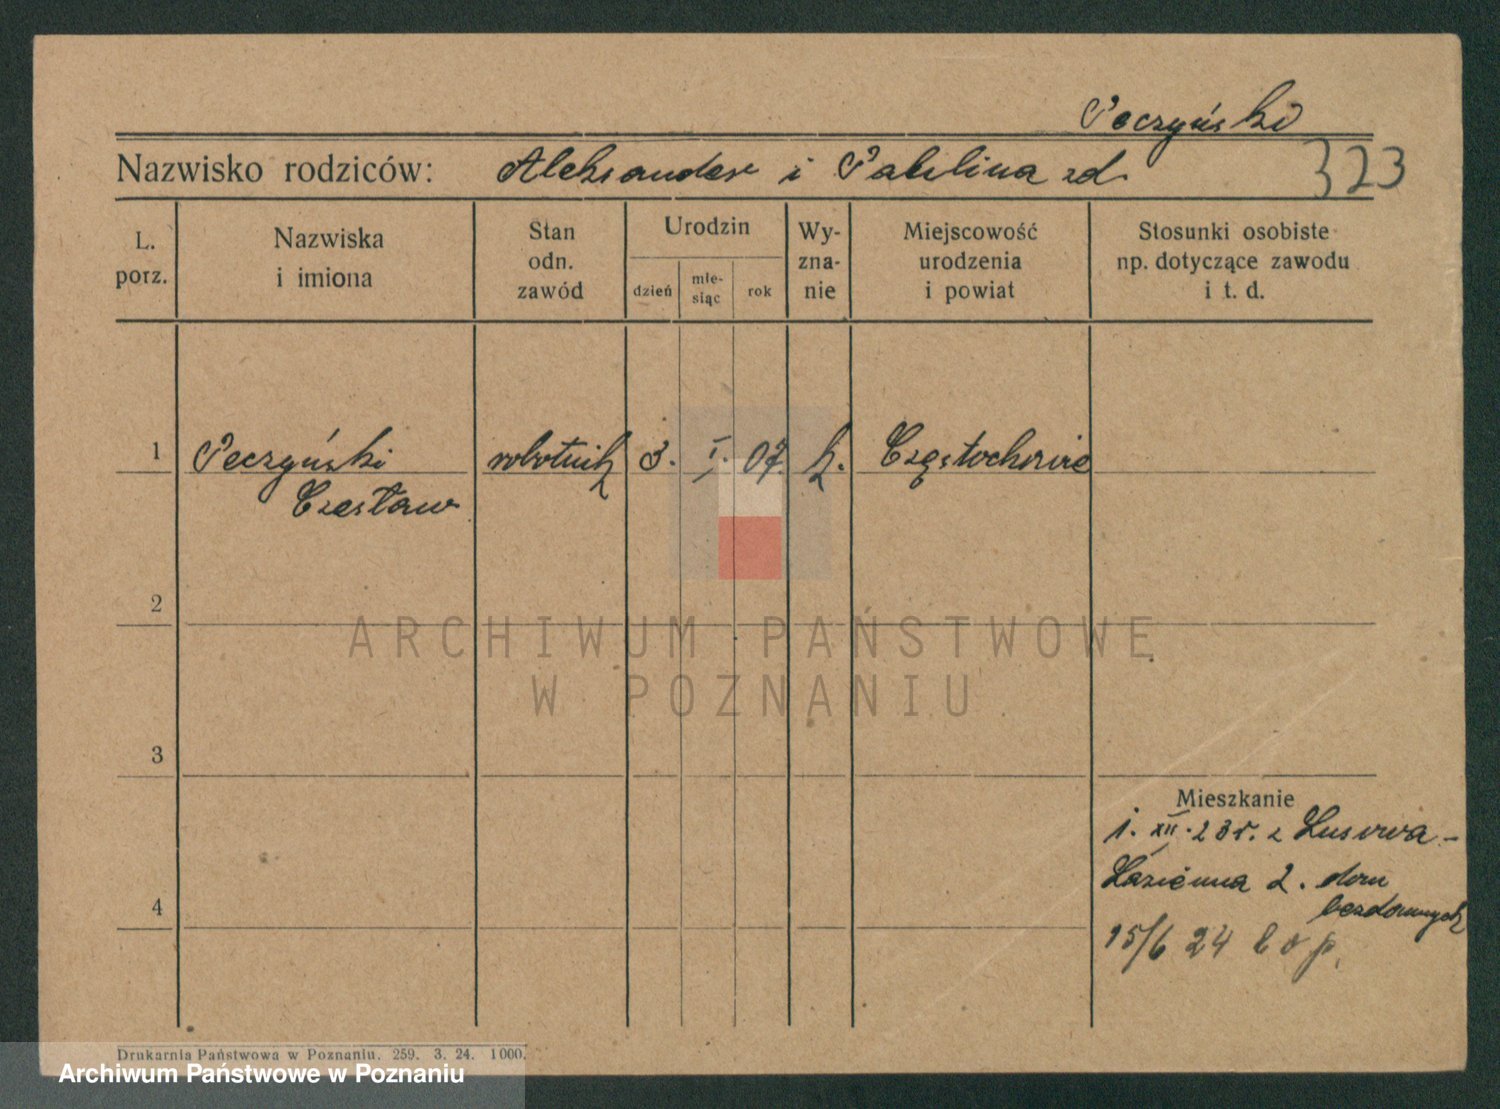 Peczyński
Nazwisko rodziców: Aleksander i Paulina zd.
323
L. porz.
Nazwiska i imiona
Stan odn. zawód
Urodzin
dzień
mie-siąc
rok
Wy-zna-nie
Miejscowość urodzenia i powiat
Stosunki osobiste np. dotyczące zawodu i t. d.
1 Peczyński robotnik 3. I. 07. k.
Czesław
2
ARCHIWUM PAŃSTWOWE
W POZNANIU
3
Mieszkanie
1. XII. 23 r. z
Łazienna 2. dom
bezdomnych
4
15/6 24
Drukarnia Państwowa w Poznaniu. 259. 3. 24. 1000.
Archiwum Państwowe w Poznaniu